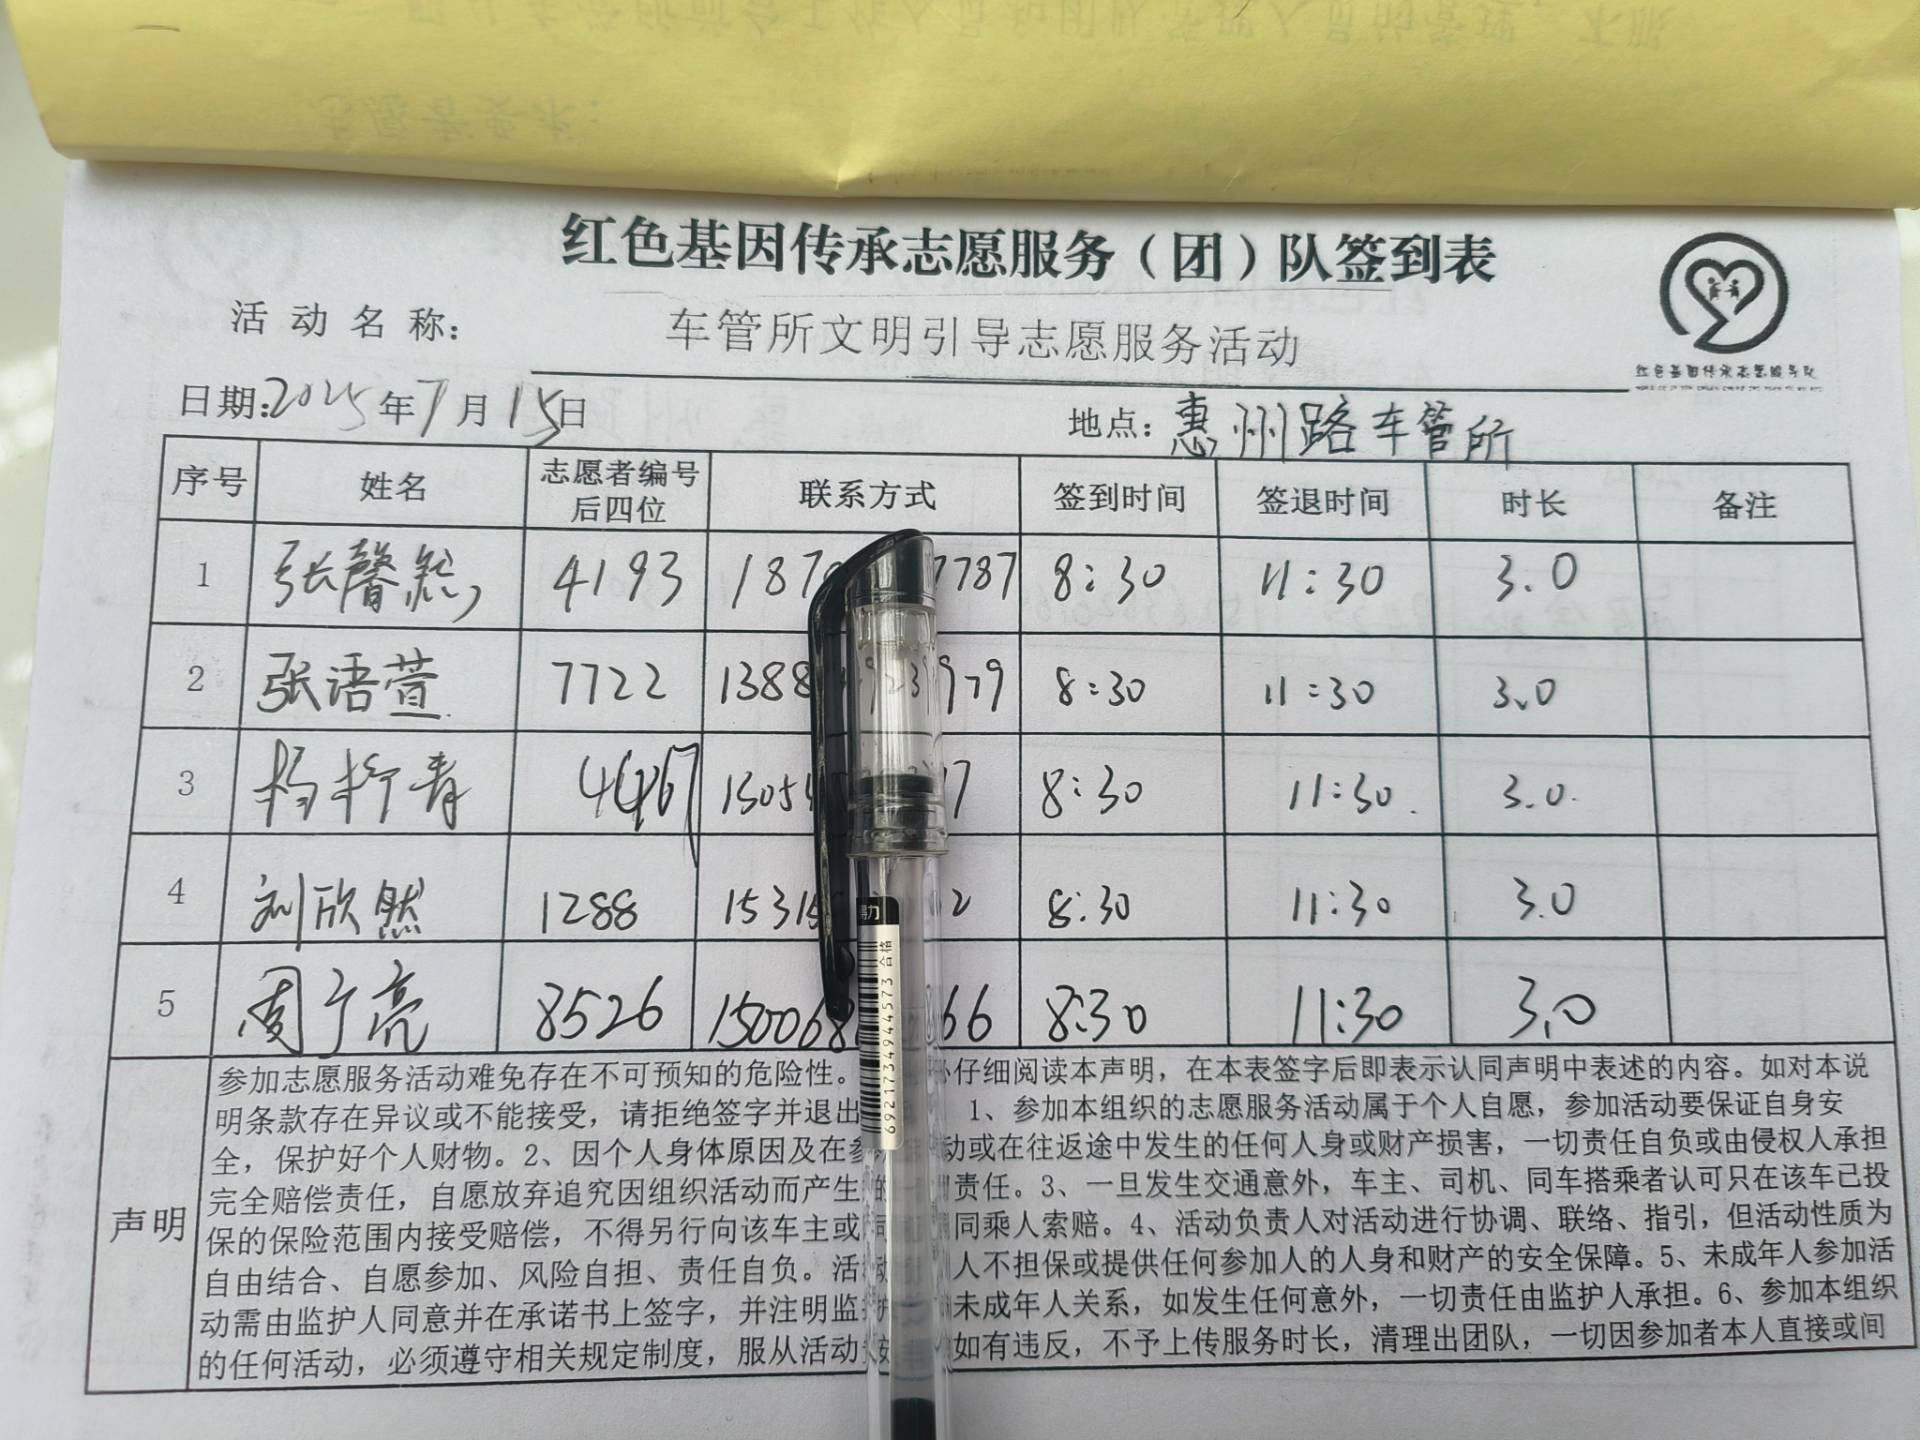 志愿者要求：
红色基因传承志愿服务（团）队签到表
活动名称： 车管所文明引导志愿服务活动
红色基因传承志愿服务队
日期：2025年7月15日 地点：惠州路车管所
序号 姓名 志愿者编号后四位 联系方式 签到时间 签退时间 时长 备注
1 张馨 4193 187 7787 8:30 11:30 3.0
2 张语萱 7722 1388 979 8:30 11:30 3.0
3 杨 青 1305 7 8:30 11:30 3.0
4 刘欣然 1288 1531 2 8:30 11:30 3.0
5 周宁亮 8526 15006 66 8:30 11:30 3.0
得力
合格
6921734944573
声明
参加志愿服务活动难免存在不可预知的危险性。 仔细阅读本声明，在本表签字后即表示认同声明中表述的内容。如对本说
明条款存在异议或不能接受，请拒绝签字并退出 1、参加本组织的志愿服务活动属于个人自愿，参加活动要保证自身安
全，保护好个人财物。2、因个人身体原因及在参 动或在往返途中发生的任何人身或财产损害，一切责任自负或由侵权人承担
完全赔偿责任，自愿放弃追究因组织活动而产生的 责任。3、一旦发生交通意外，车主、司机、同车搭乘者认可只在该车已投
保的保险范围内接受赔偿，不得另行向该车主或同 同乘人索赔。4、活动负责人对活动进行协调、联络、指引，但活动性质为
自由结合、自愿参加、风险自担、责任自负。活动 人不担保或提供任何参加人的人身和财产的安全保障。5、未成年人参加活
动需由监护人同意并在承诺书上签字，并注明监护 未成年人关系，如发生任何意外，一切责任由监护人承担。6、参加本组织
的任何活动，必须遵守相关规定制度，服从活动 如有违反，不予上传服务时长，清理出团队，一切因参加者本人直接或间